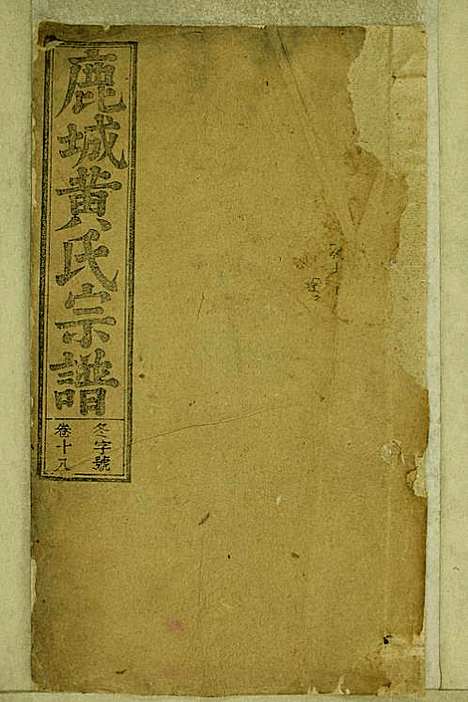 鹿城黃氏宗譜
冬字號
卷十八